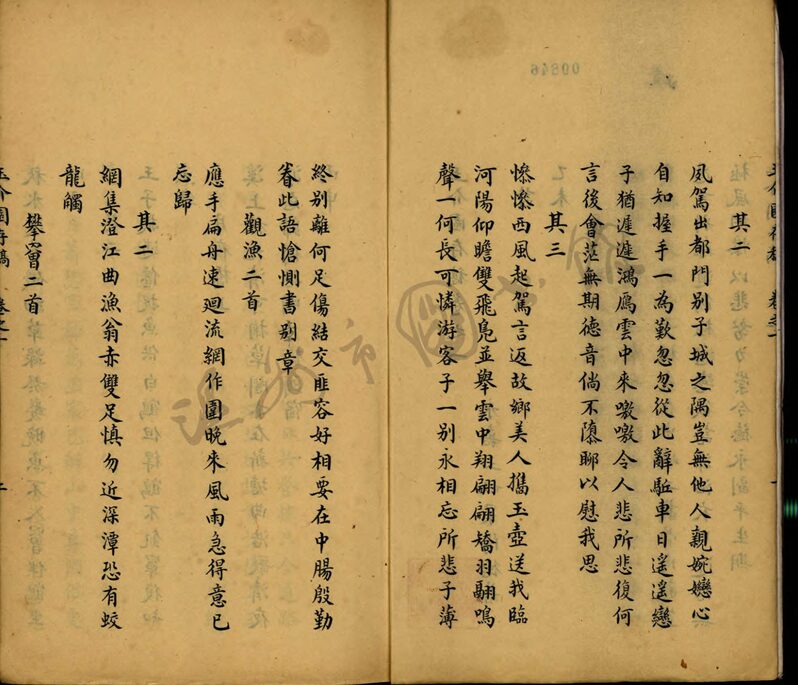 王介園存稿 卷之一
其二
夙駕出都門别子城之隅豈無他人親婉孌心
自知握手一為歎忽忽從此辭駈車日遥遥戀
子猶遲遲鴻鴈雲中來嗷嗷令人悲所悲復何
言後會茫無期德音倘不隳聊以慰我思
其三
慘慘西風起駕言返故鄉美人攜玉壺送我臨
河陽仰瞻雙飛鳧並舉雲中翔翩翩矯羽翮鳴
聲一何長可憐游客子一别永相忘所悲子薄
終别離何足傷結交匪容好相要在中腸殷勤
眷此語愴惻書别章
觀漁二首
應手扁舟速廻流網作圍晚來風雨急得意已
忘歸
其二
網集澄江曲漁翁赤雙足慎勿近深潭恐有蛟
龍觸
攀罾二首
王介園存稿 卷之一
市圖書館